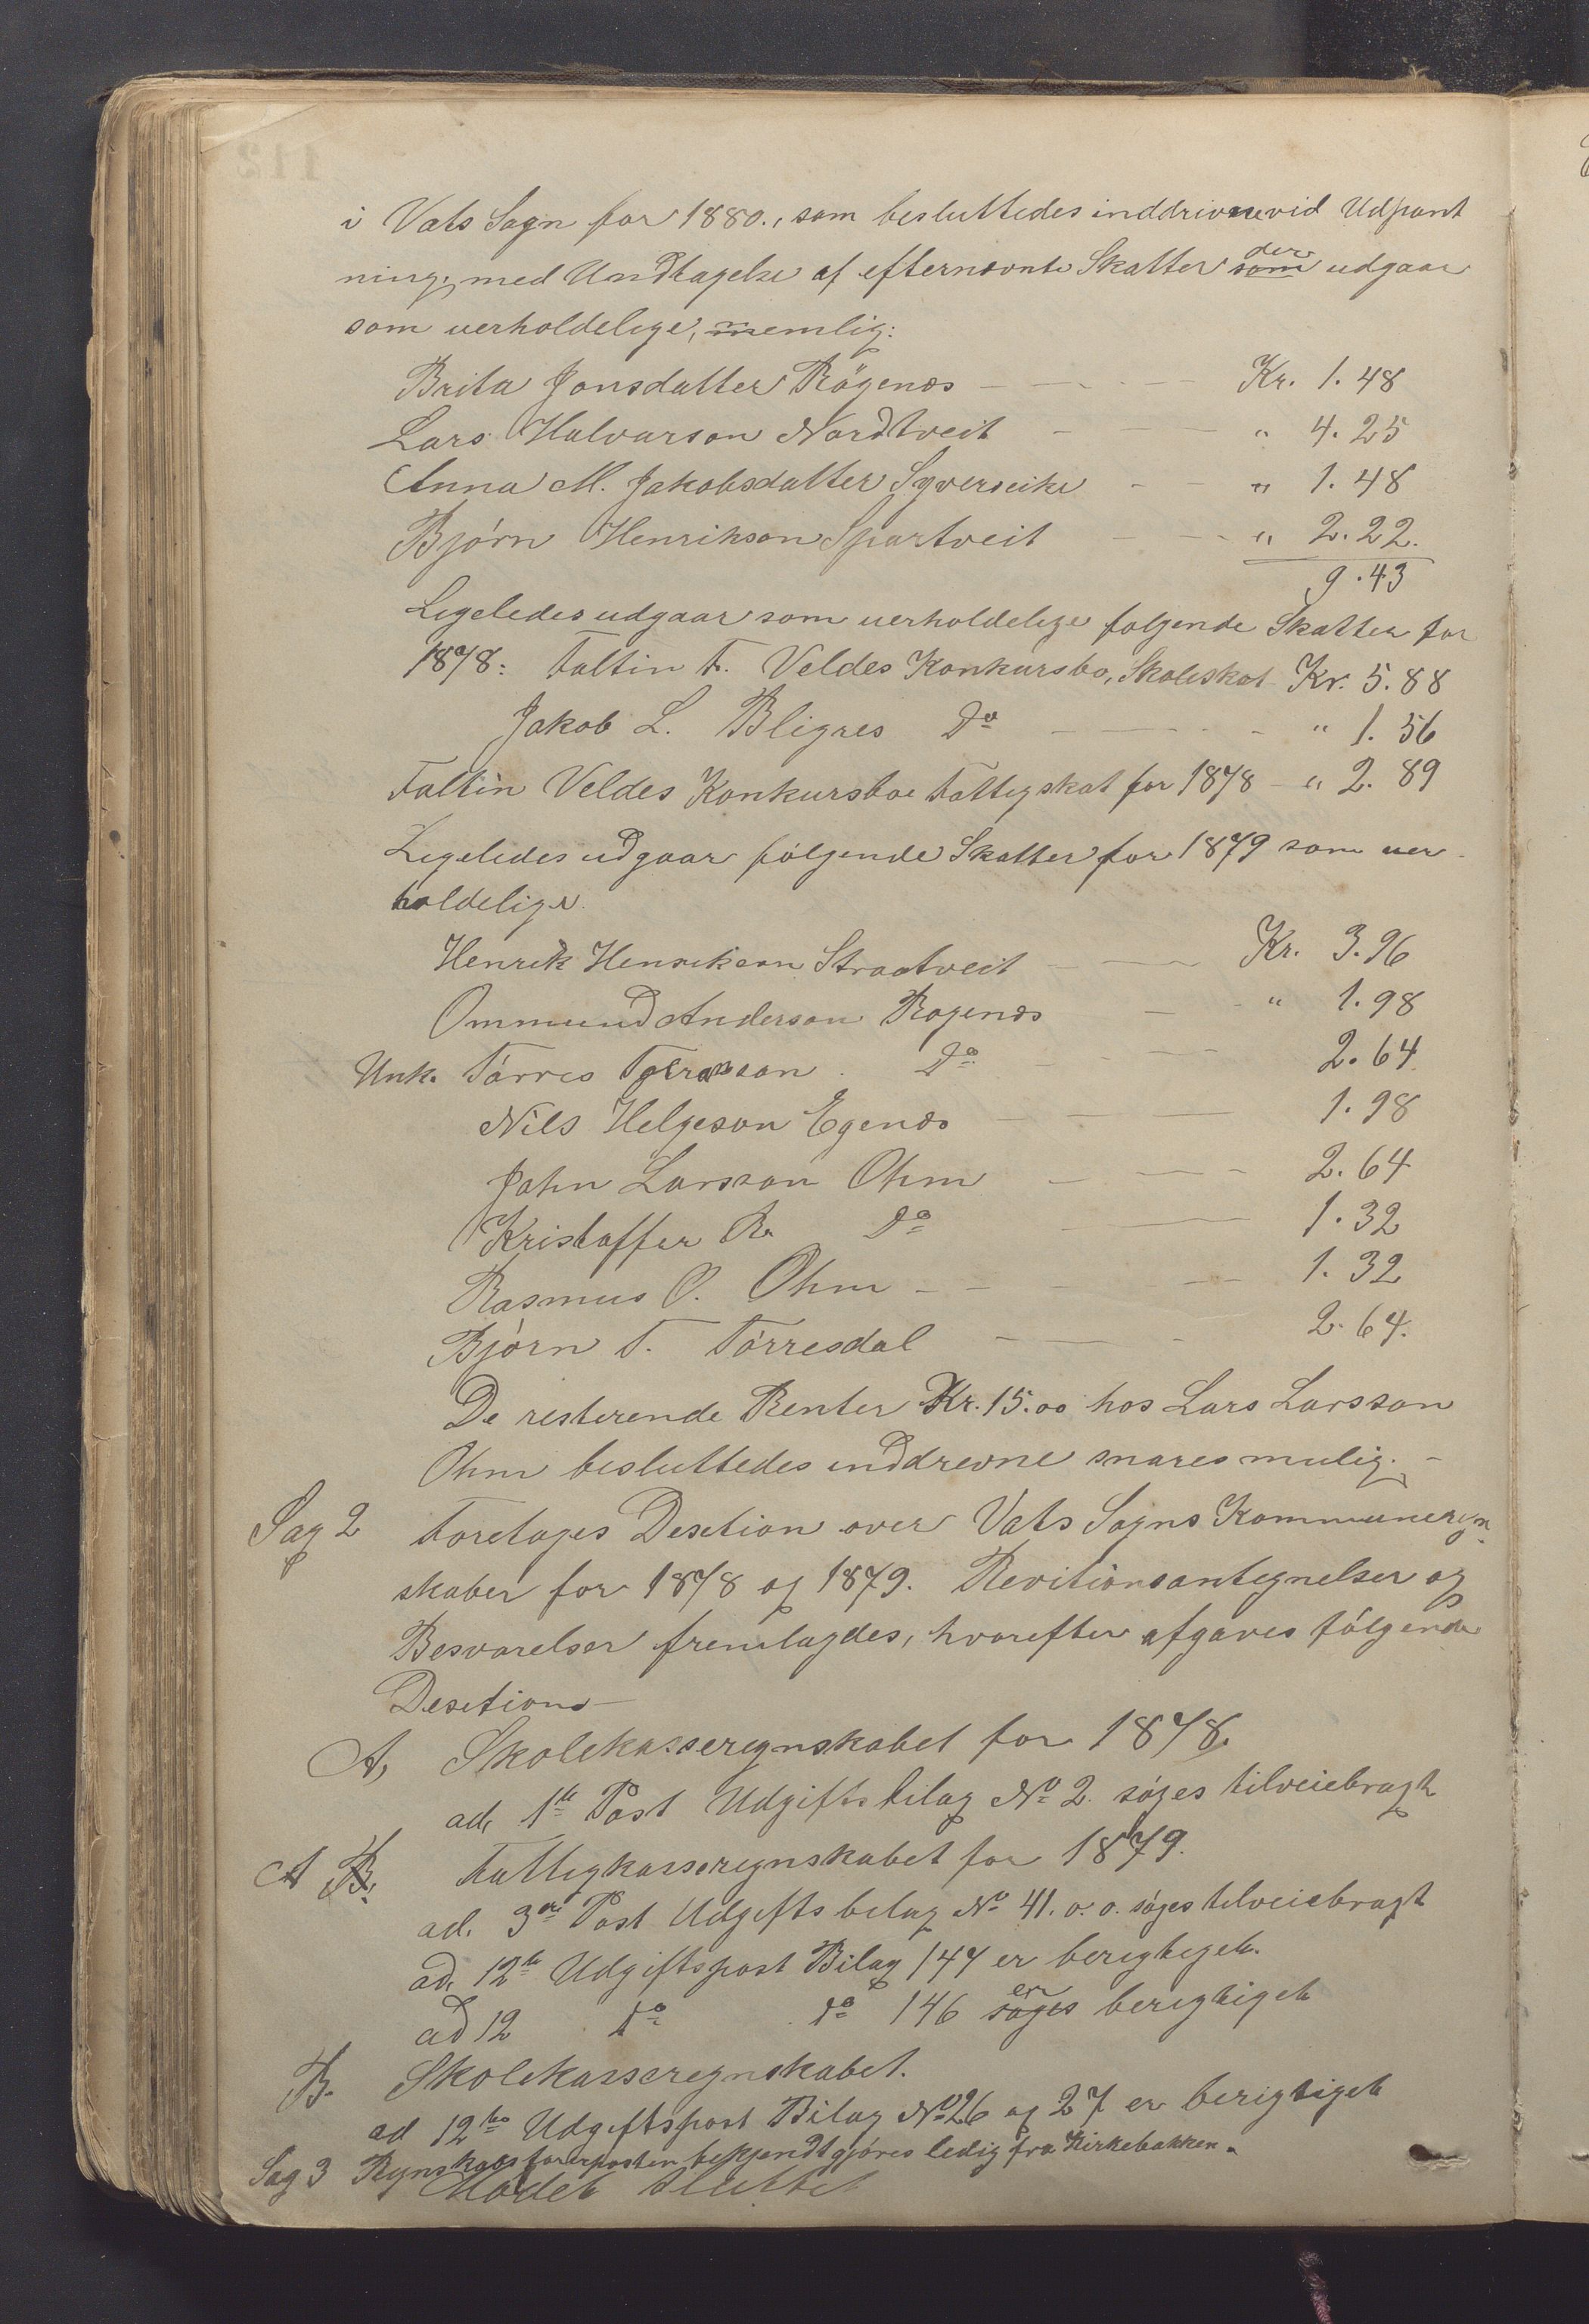 i Vats Sogn for 1880., som besluttedes inddrivne vid Udpant
ning, med Undtagelse af efternævnte Skatter som der udgaar
som uerholdelige, nemlig:
Brita Jonsdatter Røgenæs — Kr. 1.48
Lars Halvarson Nordtveit — " 4.25
Anna M. Jakobsdatter Syverseike — " 1.48
Bjørn Henrikson Spartveit — " 2.22.
9.43
Ligeledes udgaar som uerholdelige følgende Skatter for
1878: Faltin F. Veldes Konkursbo, Skoleskat Kr. 5.88
Jakob L. Do — " 1.56
Faltin Veldes Konkursboe Fattigskat for 1878 — " 2.89
Ligeledes udgaar følgende Skatter for 1879 som uer
holdelige
Henrik Henrikson Straatveit — Kr. 3.96
Ommund Anderson Røgenæs — " 1.98
Unk. Tørres Do — 2.64
Nils Helgeson Egenæs — 1.98
John Larsson Ohm — 2.64
Kristoffer R. Do — 1.32
Rasmus O. Ohm — 1.32
Bjørn T. Tørresdal — 2.64.
De resterende Renter Kr. 15.00 hos Lars Larsson
Ohm besluttedes inddrevne snares mulig. —
Sag 2 Foretoges Desetion over Vats Sogns Kommuneregn
skaber for 1878 og 1879. Revitionsantegnelser og
Besvarelser fremlagdes, hvorefter afgaves følgende
Desetion —
A, Skolekasseregnskabet for 1878.
ad, 1te Post Udgiftsbilag No 2. søges tilveiebragt
A B. Fattigkasseregnskabet for 1879.
ad. 3die Post Udgifts bilag No 41. o. o. søges tilveiebragt
ad. 12te Udgiftspost Bilag 147 er berigtiget.
ad 12 do do 146 søges er berigtiget
B. Skolekasseregnskabet.
ad 12te Udgiftspost Bilag No 26 og 27 er berigtiget
Sag 3 Regnskabsførerposten bekjendtgjøres ledig fra Kirkebakken.
Mødet sluttet